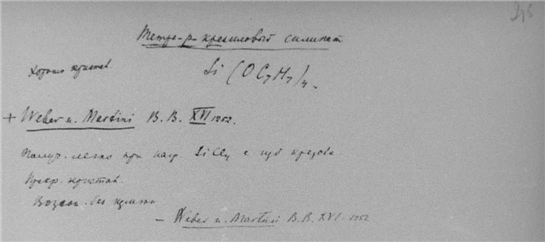 Тетра-p-крезиловый силикат
Хорошо кристал.
Si (OC7H7)4.
+ Weber u. Martini B. B. XVI 1252.
Получ. легко при нагр. SiCl4 с крезола
кристал.
Возгон. без
— Weber u. Martini B. B. XVI. 1252